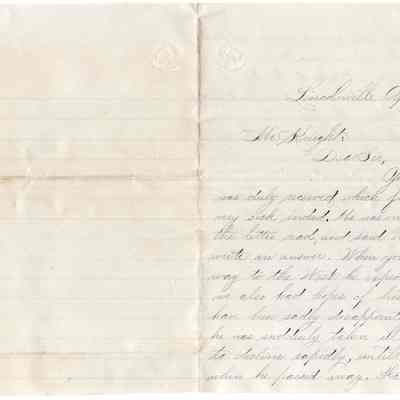 Lincolnville Ap
Mr. Knight,
Dear Sir,
Yo
was duly received which f
very sick indeed. He was
the letter read, and said
write an answer. When yo
way to the West he
we also had hopes of his
han been sadly disappoint
he was suddenly taken il
to decline rapidly, untill
when he passed away.